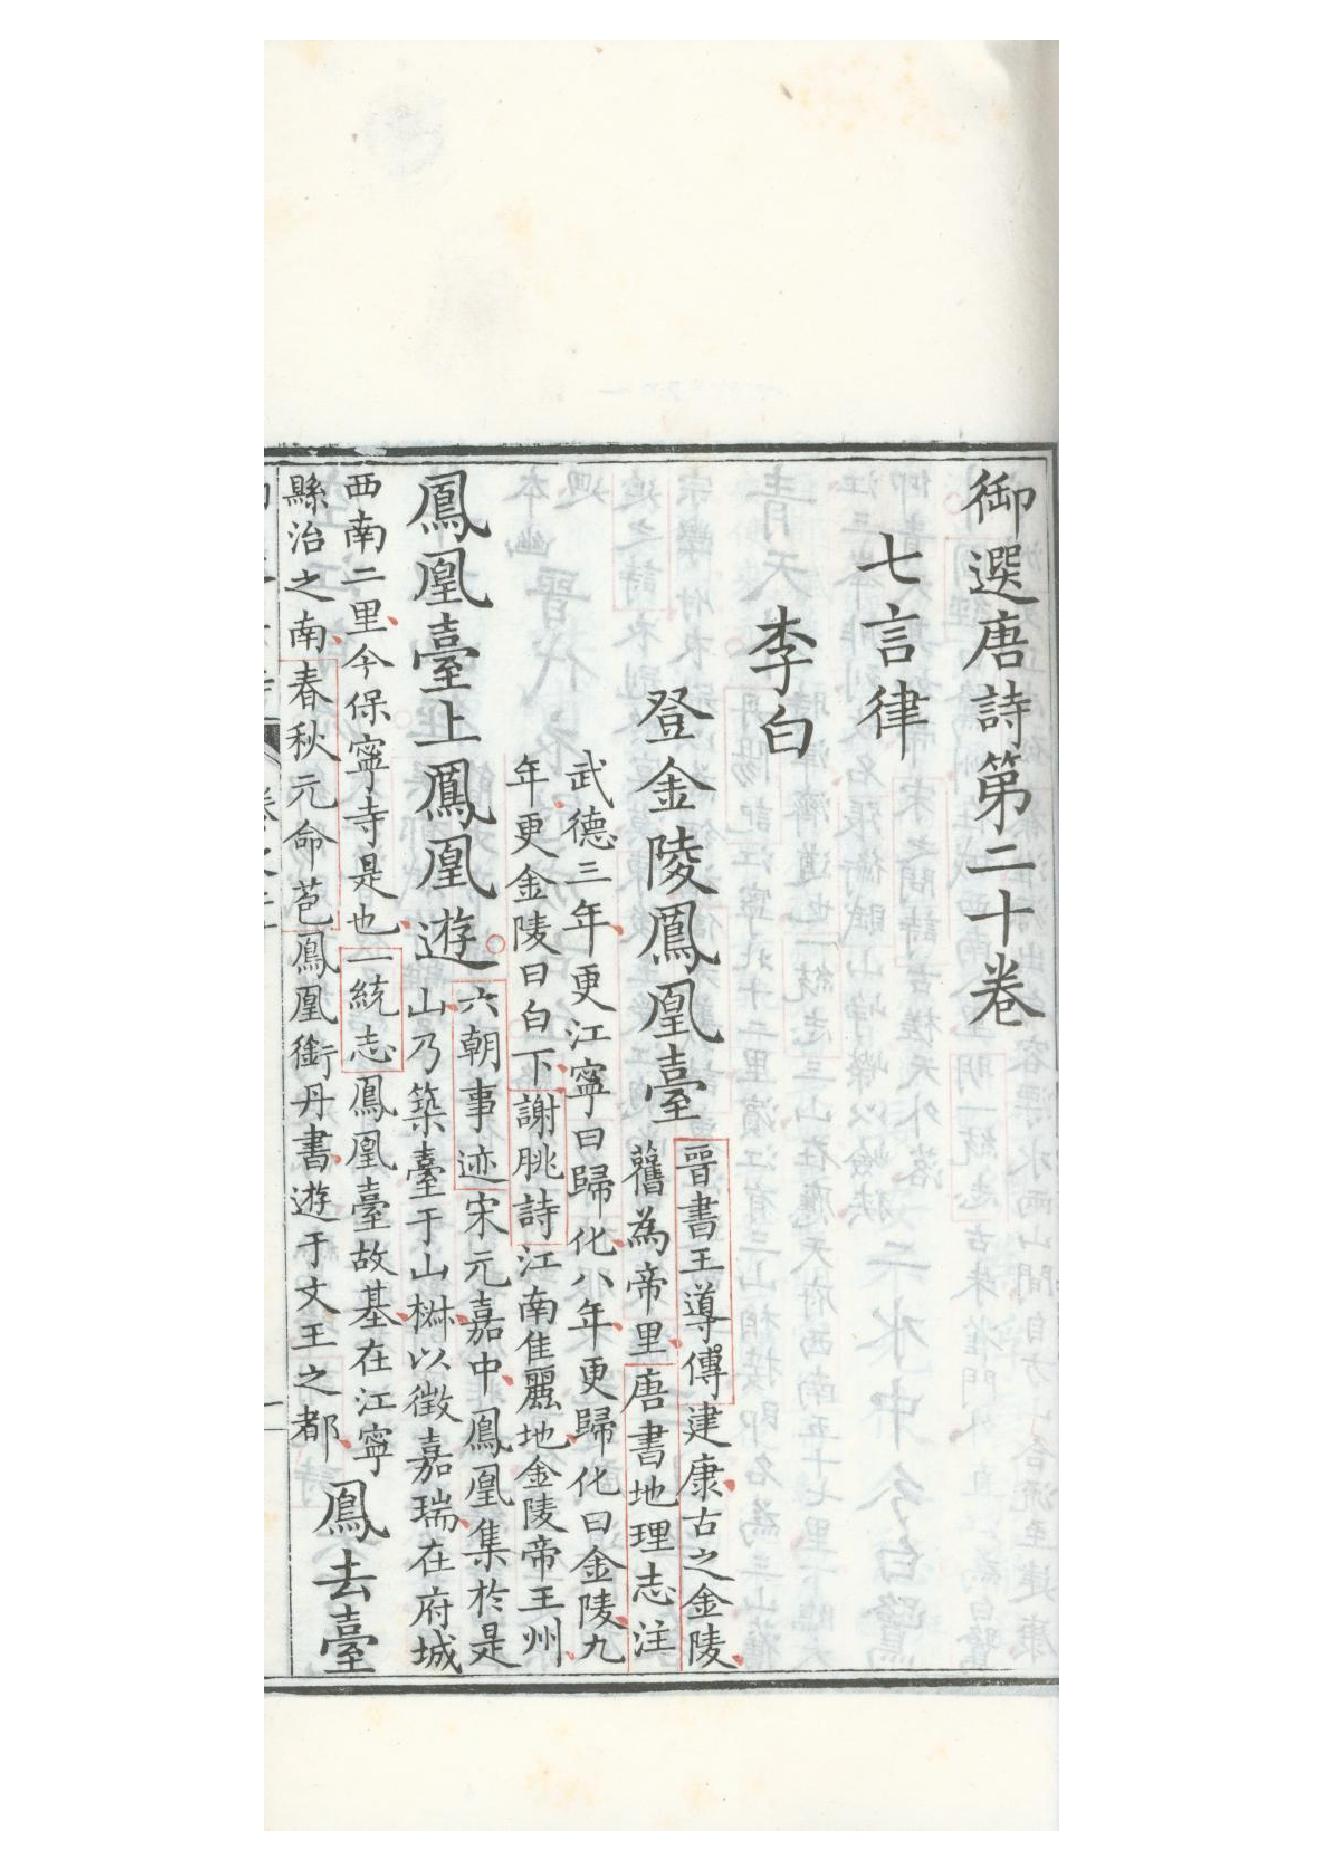 御選唐詩第二十卷
七言律
李白
登金陵鳳凰臺
晉書王導傳建康古之金陵
舊為帝里唐書地理志注
武德三年更江寧曰歸化八年更歸化曰金陵九
年更金陵曰白下謝朓詩江南佳麗地金陵帝王州
鳳凰臺上鳳凰遊
六朝事迹宋元嘉中鳳凰集於是
山乃築臺于山椒以徵嘉瑞在府城
西南二里今保寧寺是也一統志鳳凰臺故基在江寧
縣治之南春秋元命苞鳳凰銜丹書遊于文王之都
鳳去臺